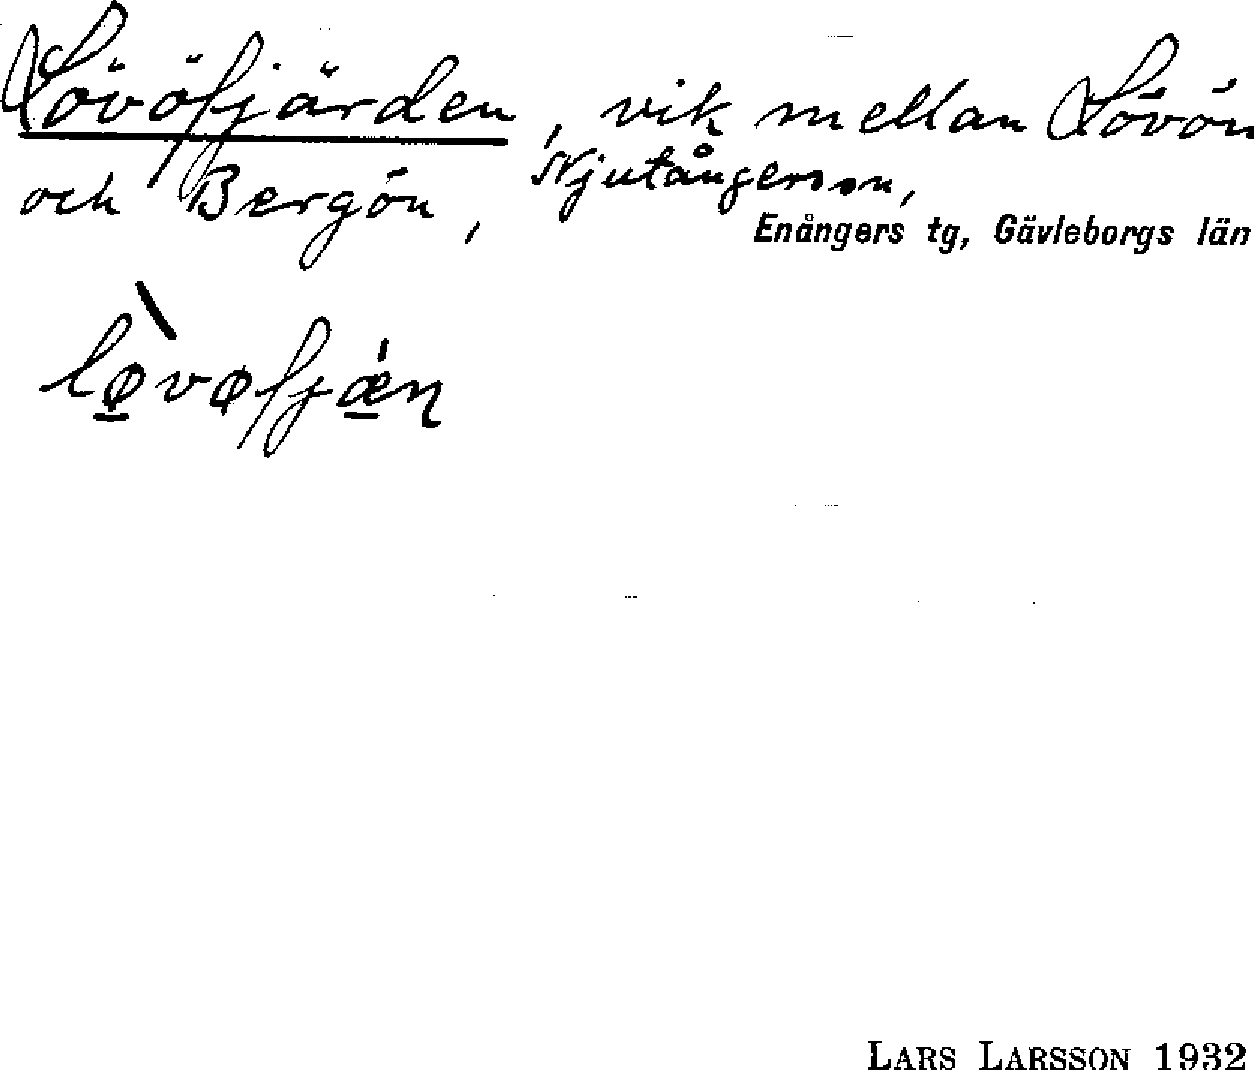 Lövöfjärden, vik mellan Lövön
och Bergön, Njutångers sn,
Enångers tg, Gävleborgs län
lø̲̀vøfjǽ̲ɳ
LARS LARSSON 1932